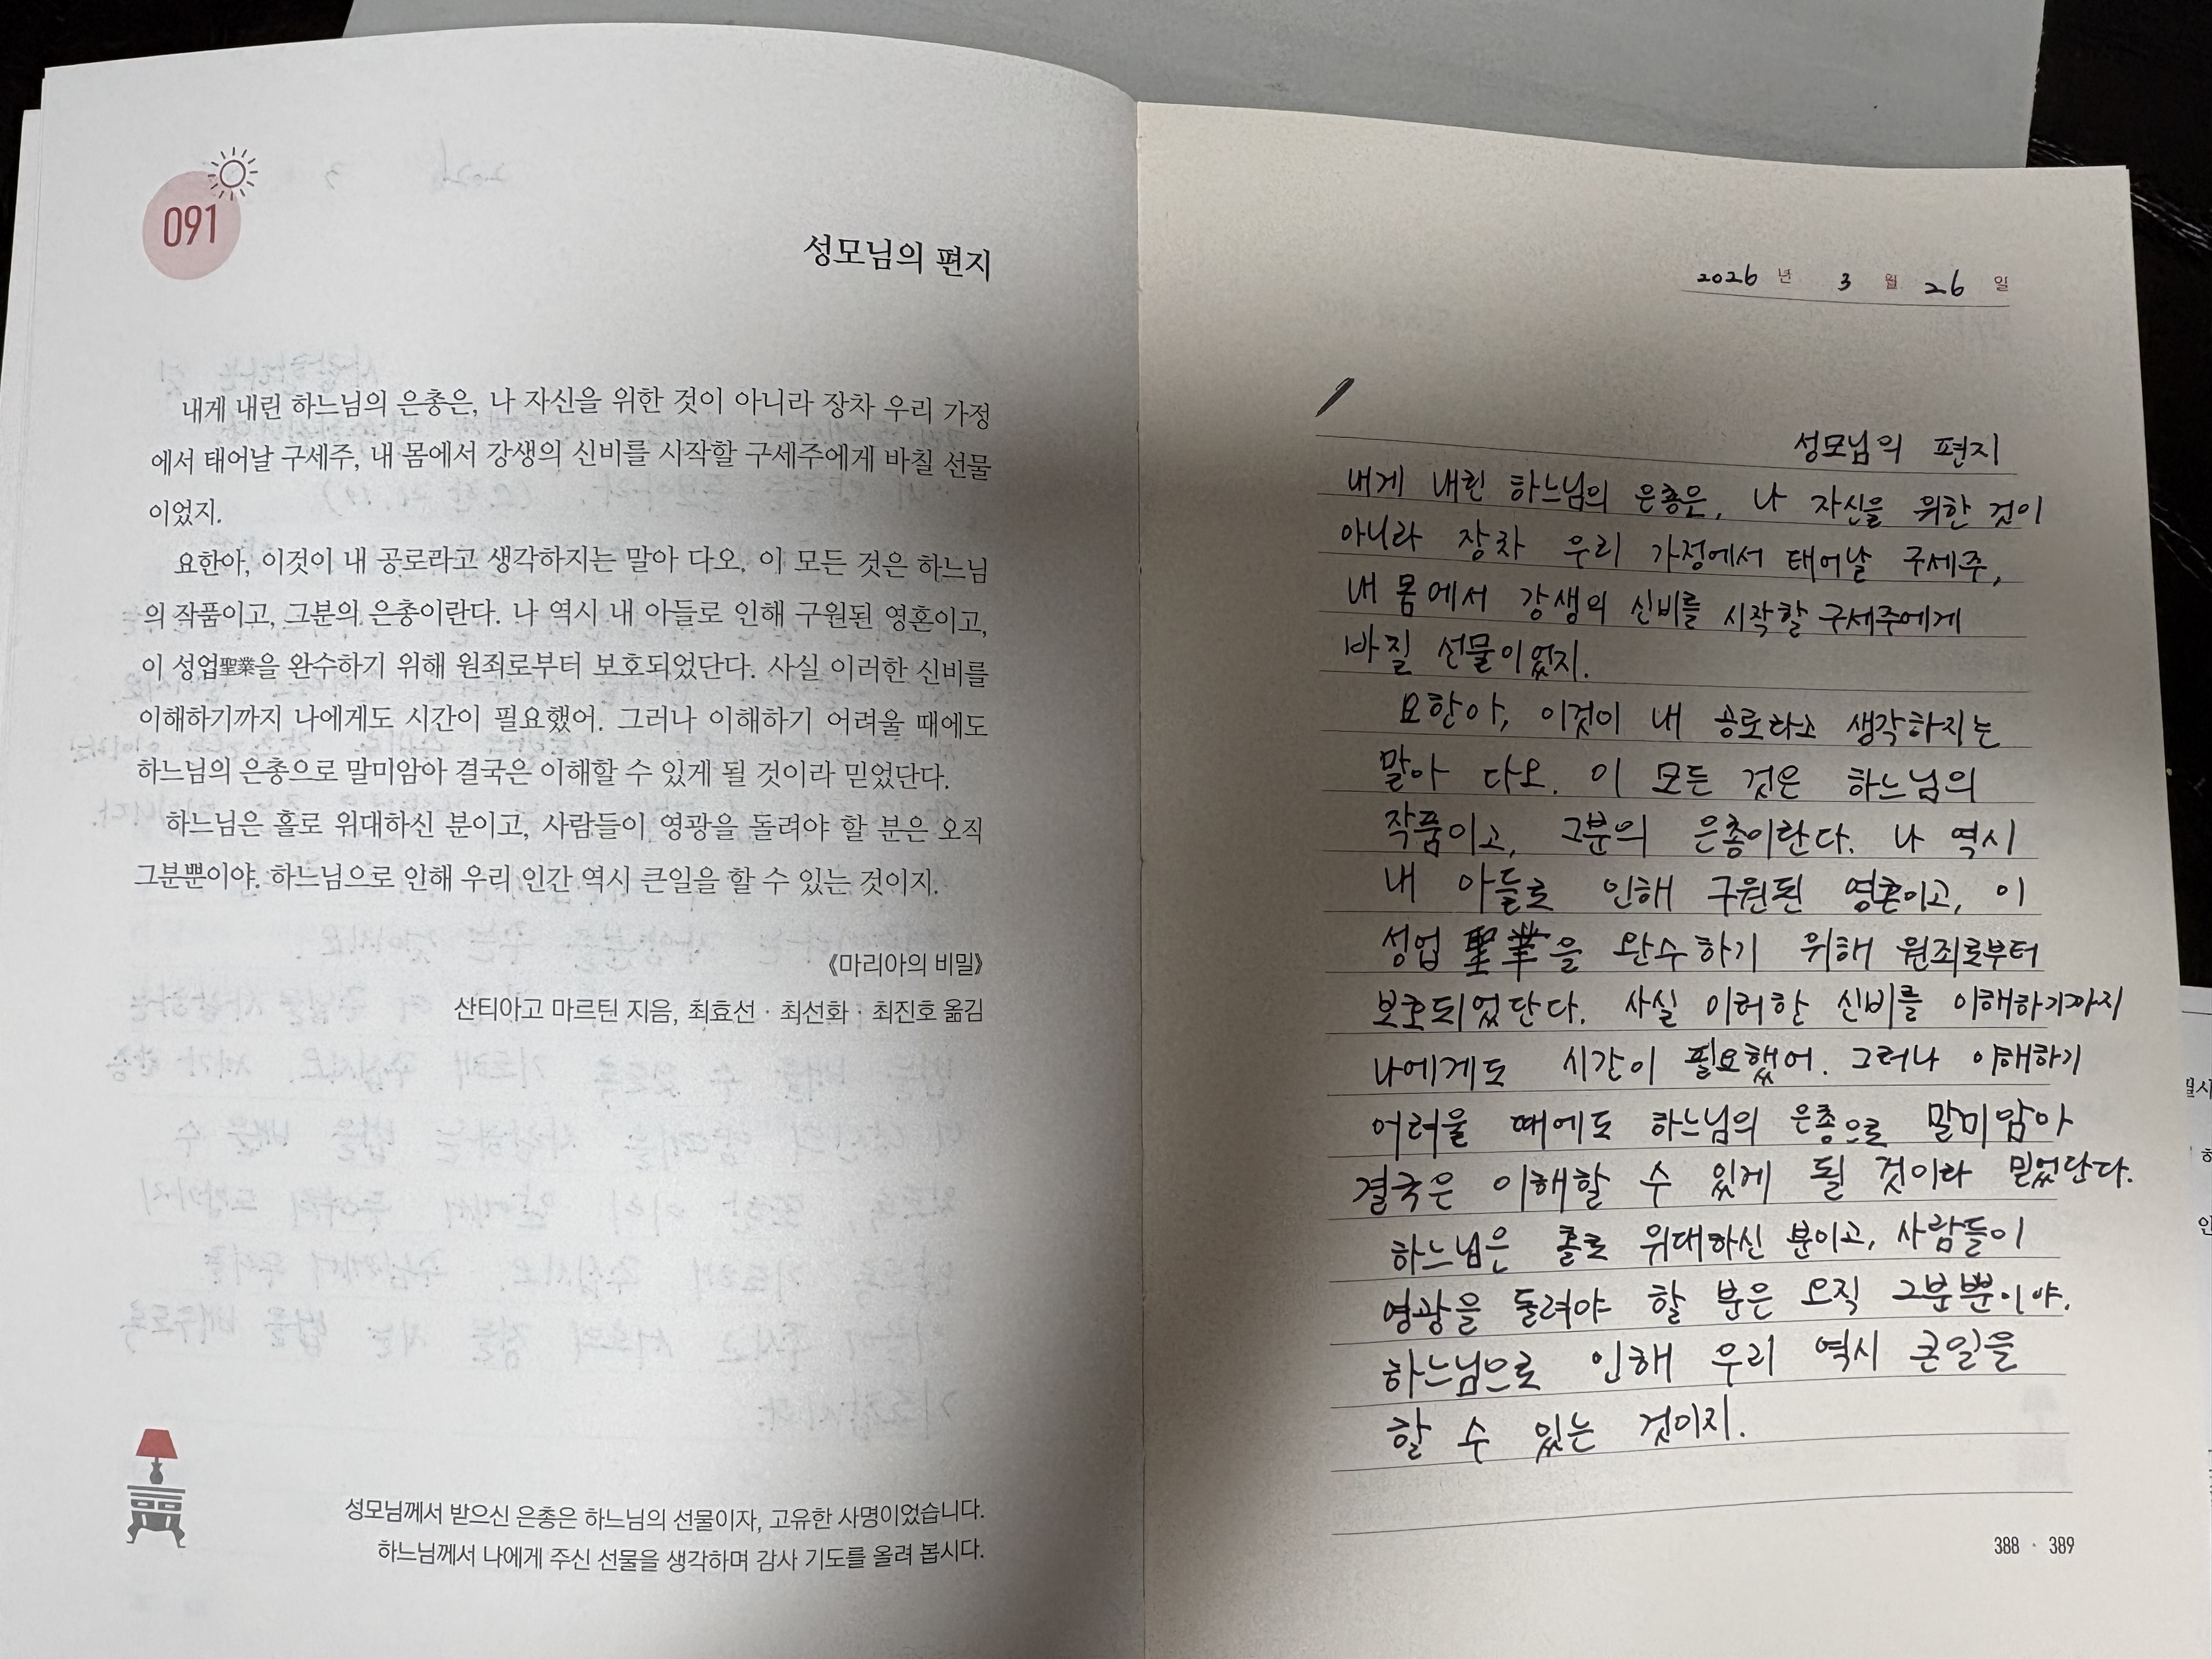 091
성모님의 편지
내게 내린 하느님의 은총은, 나 자신을 위한 것이 아니라 장차 우리 가정
에서 태어날 구세주, 내 몸에서 강생의 신비를 시작할 구세주에게 바칠 선물
이었지.
요한아, 이것이 내 공로라고 생각하지는 말아 다오. 이 모든 것은 하느님
의 작품이고, 그분의 은총이란다. 나 역시 내 아들로 인해 구원된 영혼이고,
이 성업聖業을 완수하기 위해 원죄로부터 보호되었단다. 사실 이러한 신비를
이해하기까지 나에게도 시간이 필요했어. 그러나 이해하기 어려울 때에도
하느님의 은총으로 말미암아 결국은 이해할 수 있게 될 것이라 믿었단다.
하느님은 홀로 위대하신 분이고, 사람들이 영광을 돌려야 할 분은 오직
그분뿐이야. 하느님으로 인해 우리 인간 역시 큰일을 할 수 있는 것이지.
《마리아의 비밀》
산티아고 마르틴 지음, 최효선 · 최선화 · 최진호 옮김
성모님께서 받으신 은총은 하느님의 선물이자, 고유한 사명이었습니다.
하느님께서 나에게 주신 선물을 생각하며 감사 기도를 올려 봅시다.
2026 년 3 월 26 일
성모님의 편지
내게 내린 하느님의 은총은, 나 자신을 위한 것이
아니라 장차 우리 가정에서 태어날 구세주,
내 몸에서 강생의 신비를 시작할 구세주에게
바칠 선물이었지.
요한아, 이것이 내 공로라고 생각하지는
말아 다오. 이 모든 것은 하느님의
작품이고, 그분의 은총이란다. 나 역시
내 아들로 인해 구원된 영혼이고, 이
성업 聖業을 완수하기 위해 원죄로부터
보호되었단다. 사실 이러한 신비를 이해하기까지
나에게도 시간이 필요했어. 그러나 이해하기
어려울 때에도 하느님의 은총으로 말미암아
결국은 이해할 수 있게 될 것이라 믿었단다.
하느님은 홀로 위대하신 분이고, 사람들이
영광을 돌려야 할 분은 오직 그분뿐이야.
하느님으로 인해 우리 역시 큰일을
할 수 있는 것이지.
388 · 389